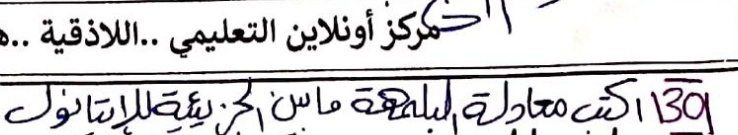 مركز أونلاين التعليمي ..اللاذقية ..
130) اكتب معادلة البلمهة ما بين الجزيئية للإيتانول